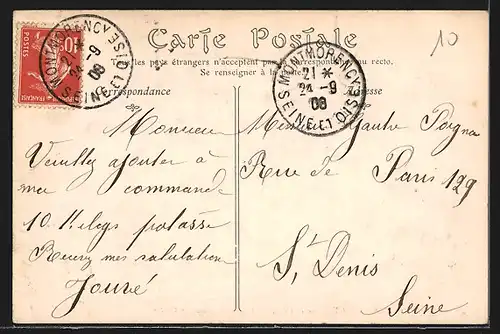 10
Carte Postale
Tous les pays étrangers n'acceptent pas la correspondance au recto.
Se renseigner à la poste
Correspondance
Adresse
POSTES
10c
MONTMORENCY
21 *
24 -9
08
SEINE-ET-OISE
MONTMORENCY
21 *
24 -9
08
SEINE-ET-OISE
Monsieur
Veuillez ajouter à
ma commande
10 Kilogs potasse
Recevez mes salutations
Jouvé
Gautre
Rue de Paris 129
St Denis
Seine